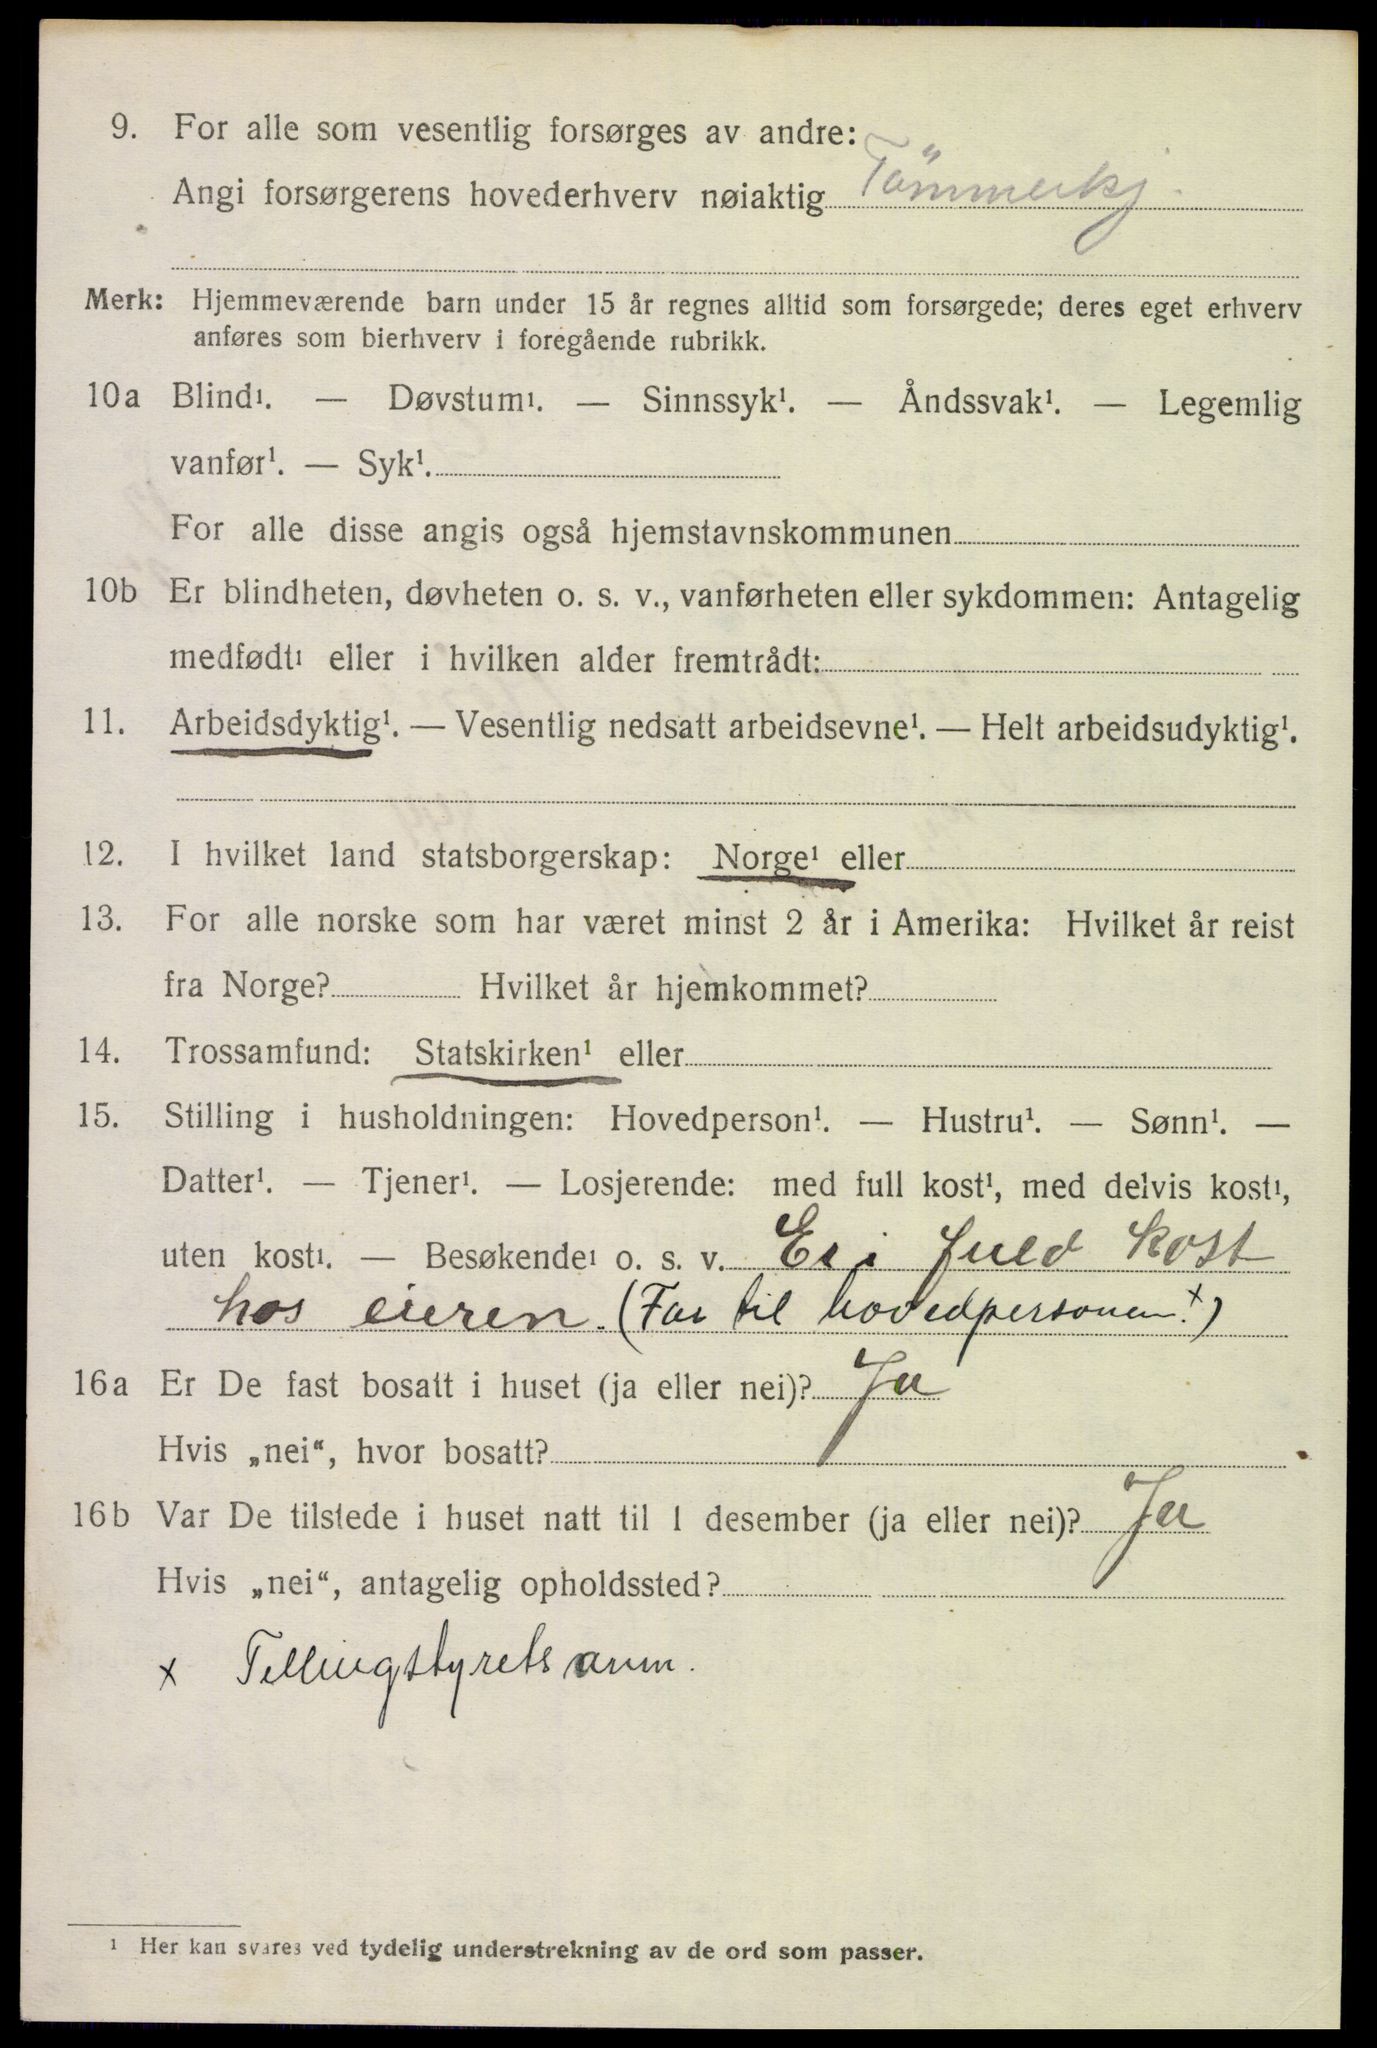 9. For alle som vesentlig forsørges av andre:
Angi forsørgerens hovederhverv nøiaktig Tömmerkj.
Merk: Hjemmeværende barn under 15 år regnes alltid som forsørgede; deres eget erhverv
anføres som bierhverv i foregående rubrikk.
10a Blind¹. — Døvstum¹. — Sinnssyk¹. — Åndssvak¹. — Legemlig
vanfør¹. — Syk¹.
For alle disse angis også hjemstavnskommunen
10b Er blindheten, døvheten o. s. v., vanførheten eller sykdommen: Antagelig
medfødt¹ eller i hvilken alder fremtrådt:
11. Arbeidsdyktig¹. — Vesentlig nedsatt arbeidsevne¹. — Helt arbeidsudyktig¹.
12. I hvilket land statsborgerskap: Norge¹ eller
13. For alle norske som har været minst 2 år i Amerika: Hvilket år reist
fra Norge? Hvilket år hjemkommet?
14. Trossamfund: Statskirken¹ eller
15. Stilling i husholdningen: Hovedperson¹. — Hustru¹. — Sønn¹. —
Datter¹. — Tjener¹. — Losjerende: med full kost¹, med delvis kost¹,
uten kost¹. — Besøkende¹ o. s. v. Er i fuld Kost
hos eieren. (Far til hovedpersonen.x)
16a Er De fast bosatt i huset (ja eller nei)? Ja
Hvis „nei“, hvor bosatt?
16b Var De tilstede i huset natt til 1 desember (ja eller nei)? Ja
Hvis „nei“, antagelig opholdssted?
x Tellingstyrets anm.
¹ Her kan svares ved tydelig understrekning av de ord som passer.